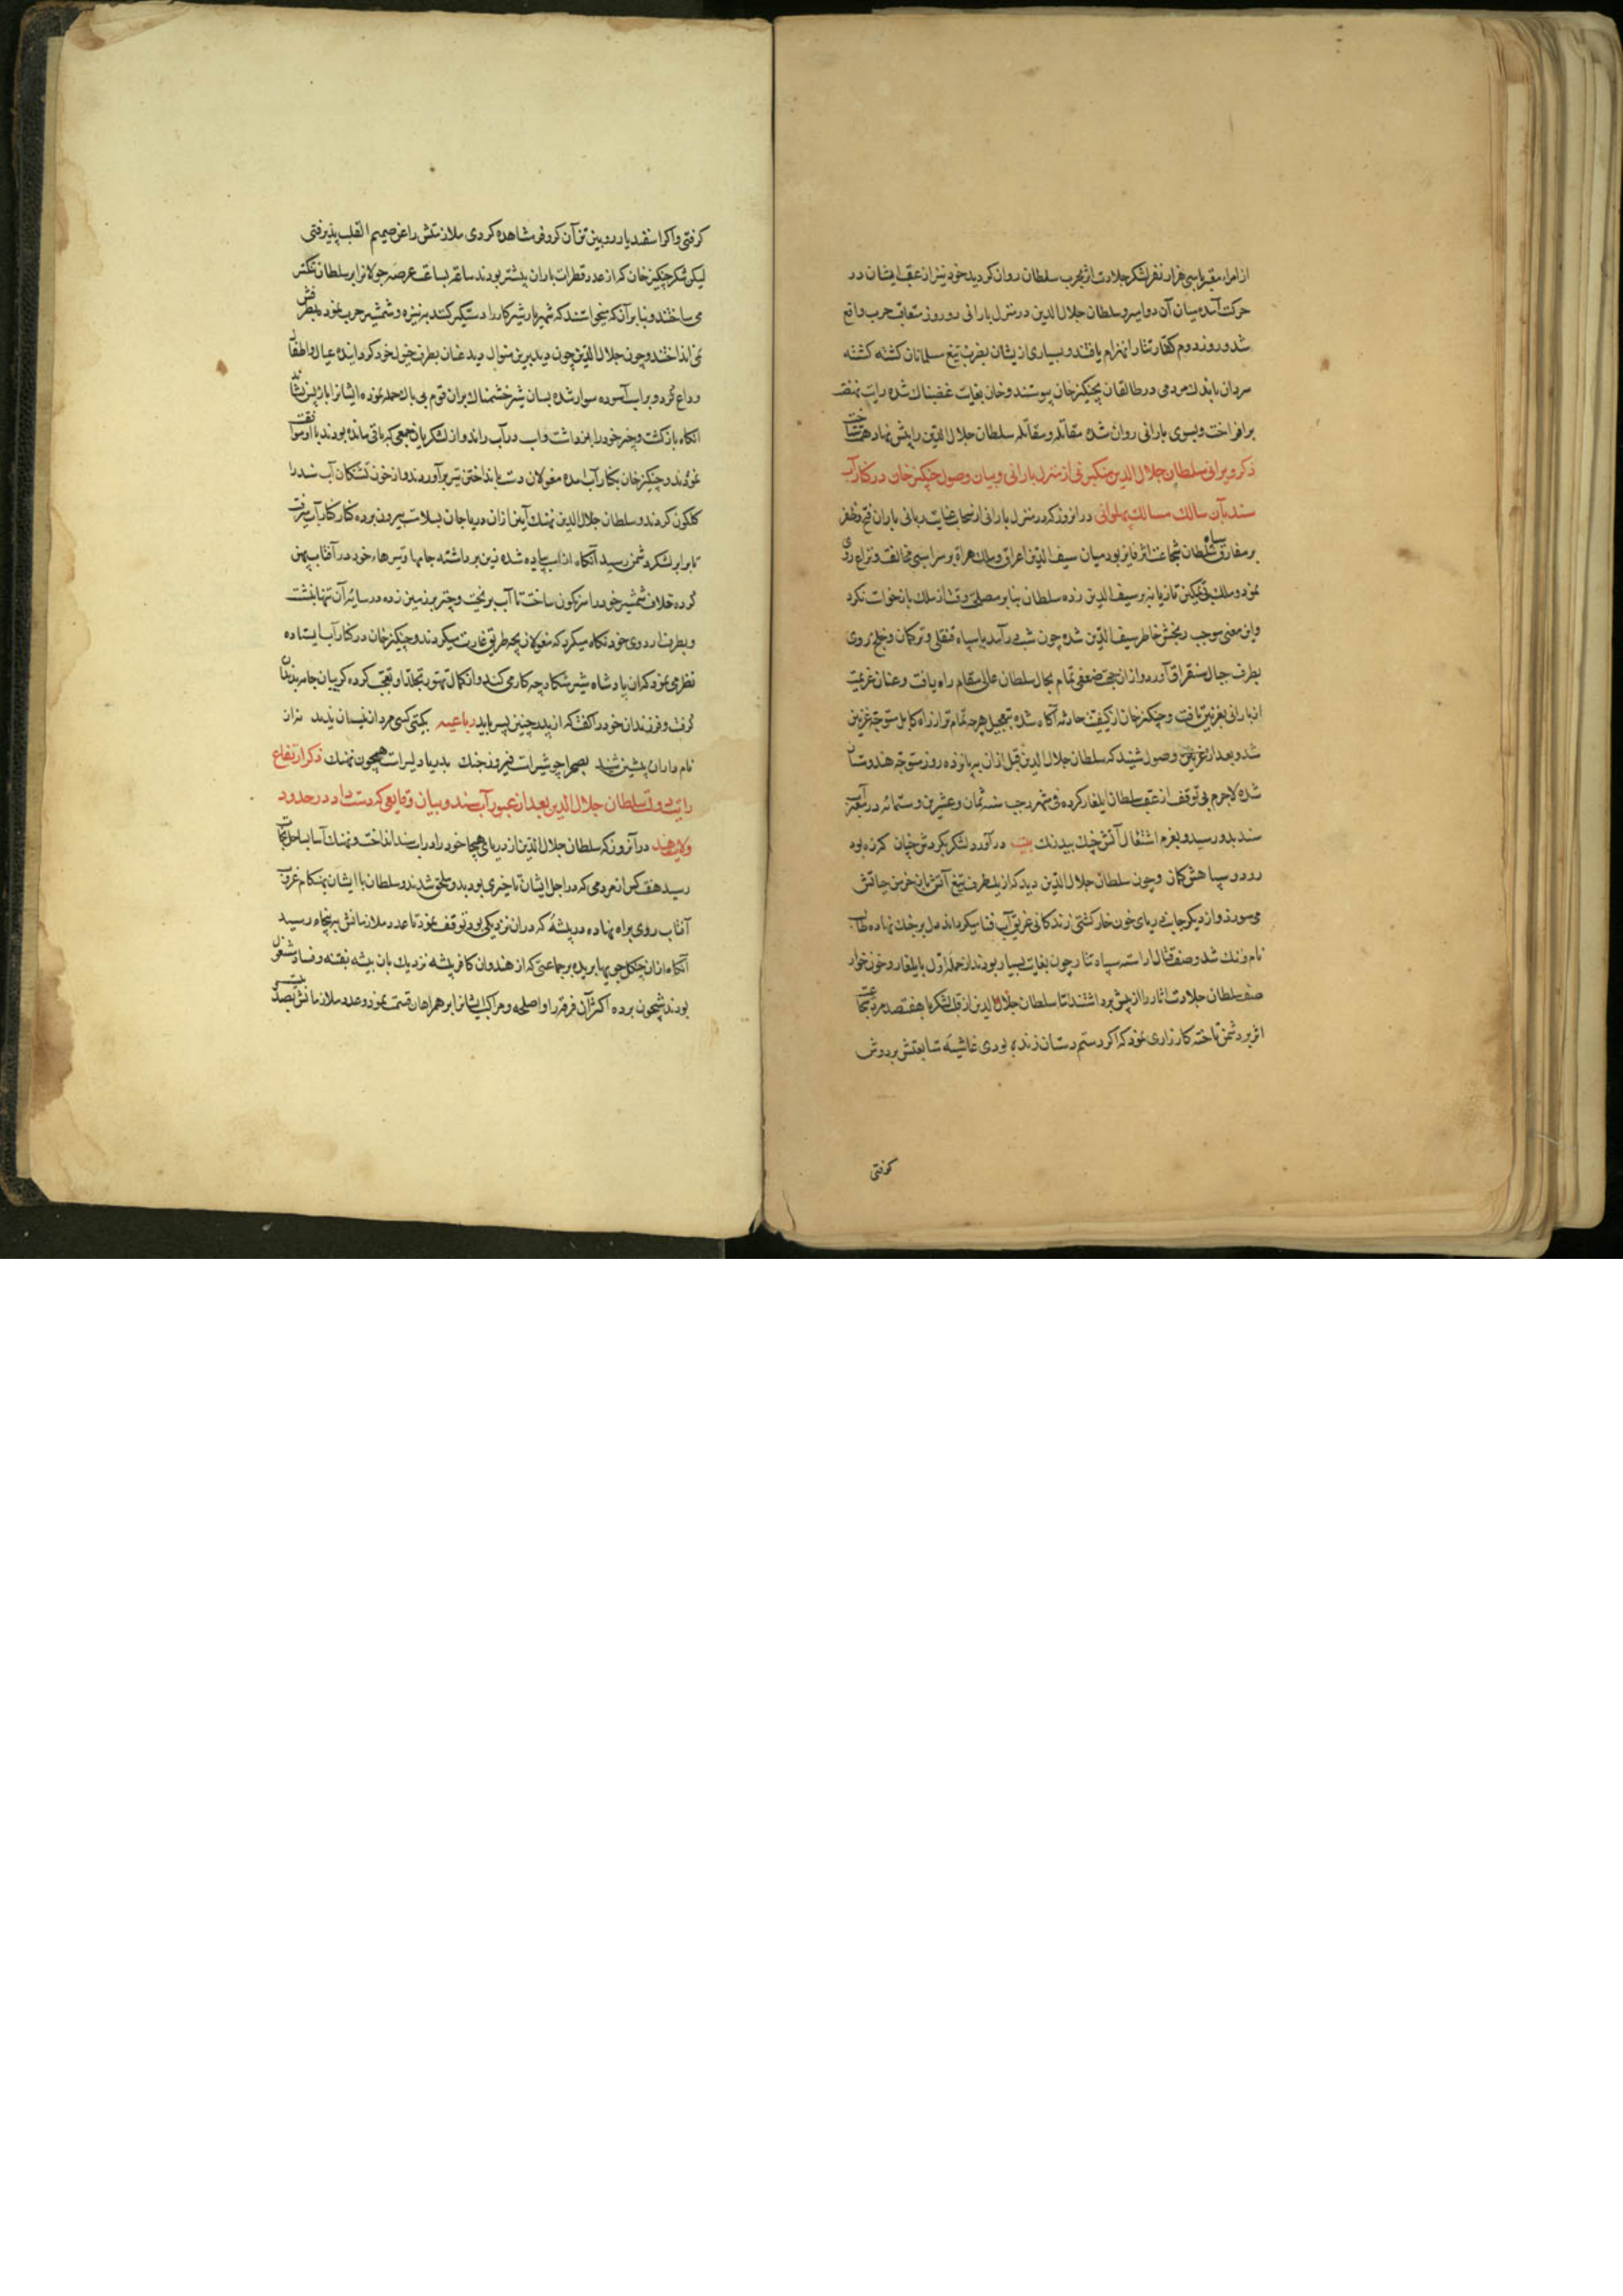 از امراء معتبر با سی هزار نفر لشکر جلادت اثر بحرب سلطان روان کردید خود نیز از عقب ایشان در
حرکت آمده میان آن دو امیر و سلطان جلال الدین در منزل بارانی دو روز متعاقب حرب واقع
شد و روز دوم کفار تتار انهزام یافتند و بسیاری ازیشان بضرب تیغ مسلمانان کشته کشته
سرداران با اندک مردمی در طالقان بچنکیز خان پیوستند و خان بغایت غضبناک شده رایت نهضت
برافراخت و بسوی بارانی روان شده مقاتله و مقابله سلطان جلال الدین را پیش نهاد همت ساخت
ذکر ویرانی سلطان جلال الدین منکبرنی از منزل بارانی و بیان وصول چنکیز خان در کنار آب
سند بآن سالک مسالک پهلوانی در انروز که در منزل بارانی از سحاب عنایت ربانی باران فتح و ظفر
بر مفارق سپاه سلطان شجاعت اثر فایز بود میان سیف الدین اعراق و ملک هراة بر سر اسبی مخالفت و نزاع روی
نمود و ملک تازیانه بر سیف الدین زده سلطان بنابر مصلحت وقت از ملک بازخواست نکرد
و این معنی موجب رنجش خاطر سیف الدین شده چون شب در آمد با سپاه قنقلی و ترکمان و خلج روی
بطرف جبال سنقراق آورد و ازان جهت ضعفی تمام بحال سلطان عالی مقام راه یافت و عنان عزیمت
از بارانی بغزنین تافت و چنکیز خان از کیفیت حادثه آکاه شده بتعجیل هرچه تمام تر از راه کابل متوجه غزنین
شد و بعد از وصول شنید که سلطان جلال الدین قبل ازان به پانزده روز متوجه هندوستان
شده لاجرم بی توقف از عقب سلطان ایلغار کرده فی شهر رجب سنه ثمان و عشرین و ستمائه در آب
سند بدو رسید و بعزم اشتعال آتش جنک بیدرنک بیت در آورد لشکر بکردش چنان کزده بود
رود و سپاهش کمان و چون سلطان جلال الدین دید که از یک طرف تیغ آتش بار خرمن حیاتش
می سوزد و از دیکر جانب دریای خون خوار کشتی زندکانی غریق آب فنا میکرداند دل بر جنک نهاده طالب
نام و ننک شد و صف قتال اراسته سپاه تتار چون بغایت بسیار بودند از حمله اول با یلغار و خون خوار
صف سلطان جلادت اثار را از پیش برداشتند تا سلطان جلال الدین از قلب لشکر با هفتصد مرد شجاعت
اثر بر دشمن تاخته کارزاری نمود که اکر رستم دستان زنده بودی غاشیه متابعتش بر دوش
کرفتی
کرفتی و اکر اسفندیار رویین تن آن کر و فر مشاهده کردی ملازمتش را عن صمیم القلب پذیرفتی
لیکن لشکر چنکیز خان که از عدد قطرات باران بیشتر بودند ساعة بساعت عرصه جولانرا بر سلطان تنکتر
می ساختند و بنابر آن که میخواستند که شهریار شیر کار را دستکیر کنند به نیزه و شمشیر حرب نموده بطرفش تیر
نمی انداختند و چون جلال الدین چون دید برین منوال دید عنان بطرف خیل خود کردانیده عیال و اطفال را
وداع کرد و بر اسب آسوده سوار شده بسان شیر خشمناک بران قوم بی باک حمله نموده ایشانرا باز پس نشاند
انکاه بازکشت و چتر خود را برداشت و اسب در آب راند و از لشکریان جمعی که باقی مانده بودند با او موافقت
نمودند و چنکیز خان بکنار آب امده مغولان دست بانداختن تیر برآوردند و از خون کشتکان آب سند را
کلکون کردند و سلطان جلال الدین نهنک آیین ازان دریا جان بسلامت بیرون برده کنار کنار آب میرفت
تا برابر لشکر دشمن رسید آنکاه از اسب پیاده شده زین برداشته جامها و تیرهاء خود در آفتاب پهن
کرده غلاف شمشیر خود را سرنکون ساخت تا آب بریخت و چتر بر زمین زده در سایه آن تنها بنشست
و بطرف اردوی خود نکاه میکرد که مغولان بچه طریق غارت میکردند و چنکیز خان در کنار آب ایستاده
نظر می نمود که ان پادشاه شیر شکار چه کار می کند و از کمال تهور و تجلد او تعجب کرده کریبان جامه بدندان
کرفت و فرزندان خود را کفت که از پدر چنین پسر باید رباعیه بکیتی کسی مرد ازینسان ندید نه از
نام داران پیشین شنید بصحرا چو شیرست فیروز جنک بدریا دلیرست همچون نهنک ذکر ارتفاع
رایت دولت سلطان جلال الدین بعد از عبور آب سند و بیان وقایعی که دست داد در حدود
ولایت هند در آنروز که سلطان جلال الدین از دریای هیجا خود را در اب سند انداخت و نهنک آسا بساحل نجات
رسید هفت کس از مردمی که در اجل ایشان تاخیری بود بدو ملحق شدند و سلطان با ایشان بهنکام غروب
آفتاب روی براه نهاده در بیشه که دران نزدیکی بود توقف نمود تا عدد ملازمانش به پنجاه رسید
آنکاه ازان جنکل چوبها بریده بر جماعتی که از هندوان کافر پیشه نزدیک بان بیشه بفتنه و فساد مشغول
بودند شبیخون برده اکثر آن فرقه را و اصلحه و مراکب ایشانرا بر همراهان قسمت نمود و عدد ملازمانش بصد